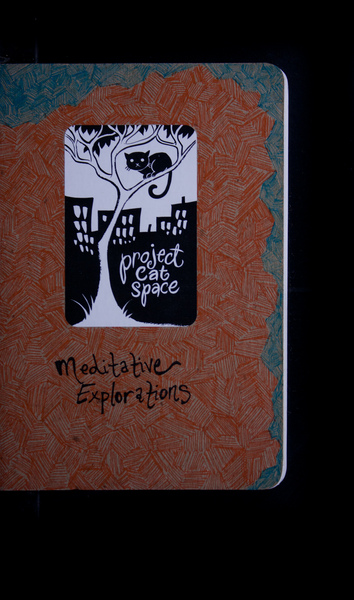 project
cat
space
Meditative
Explorations